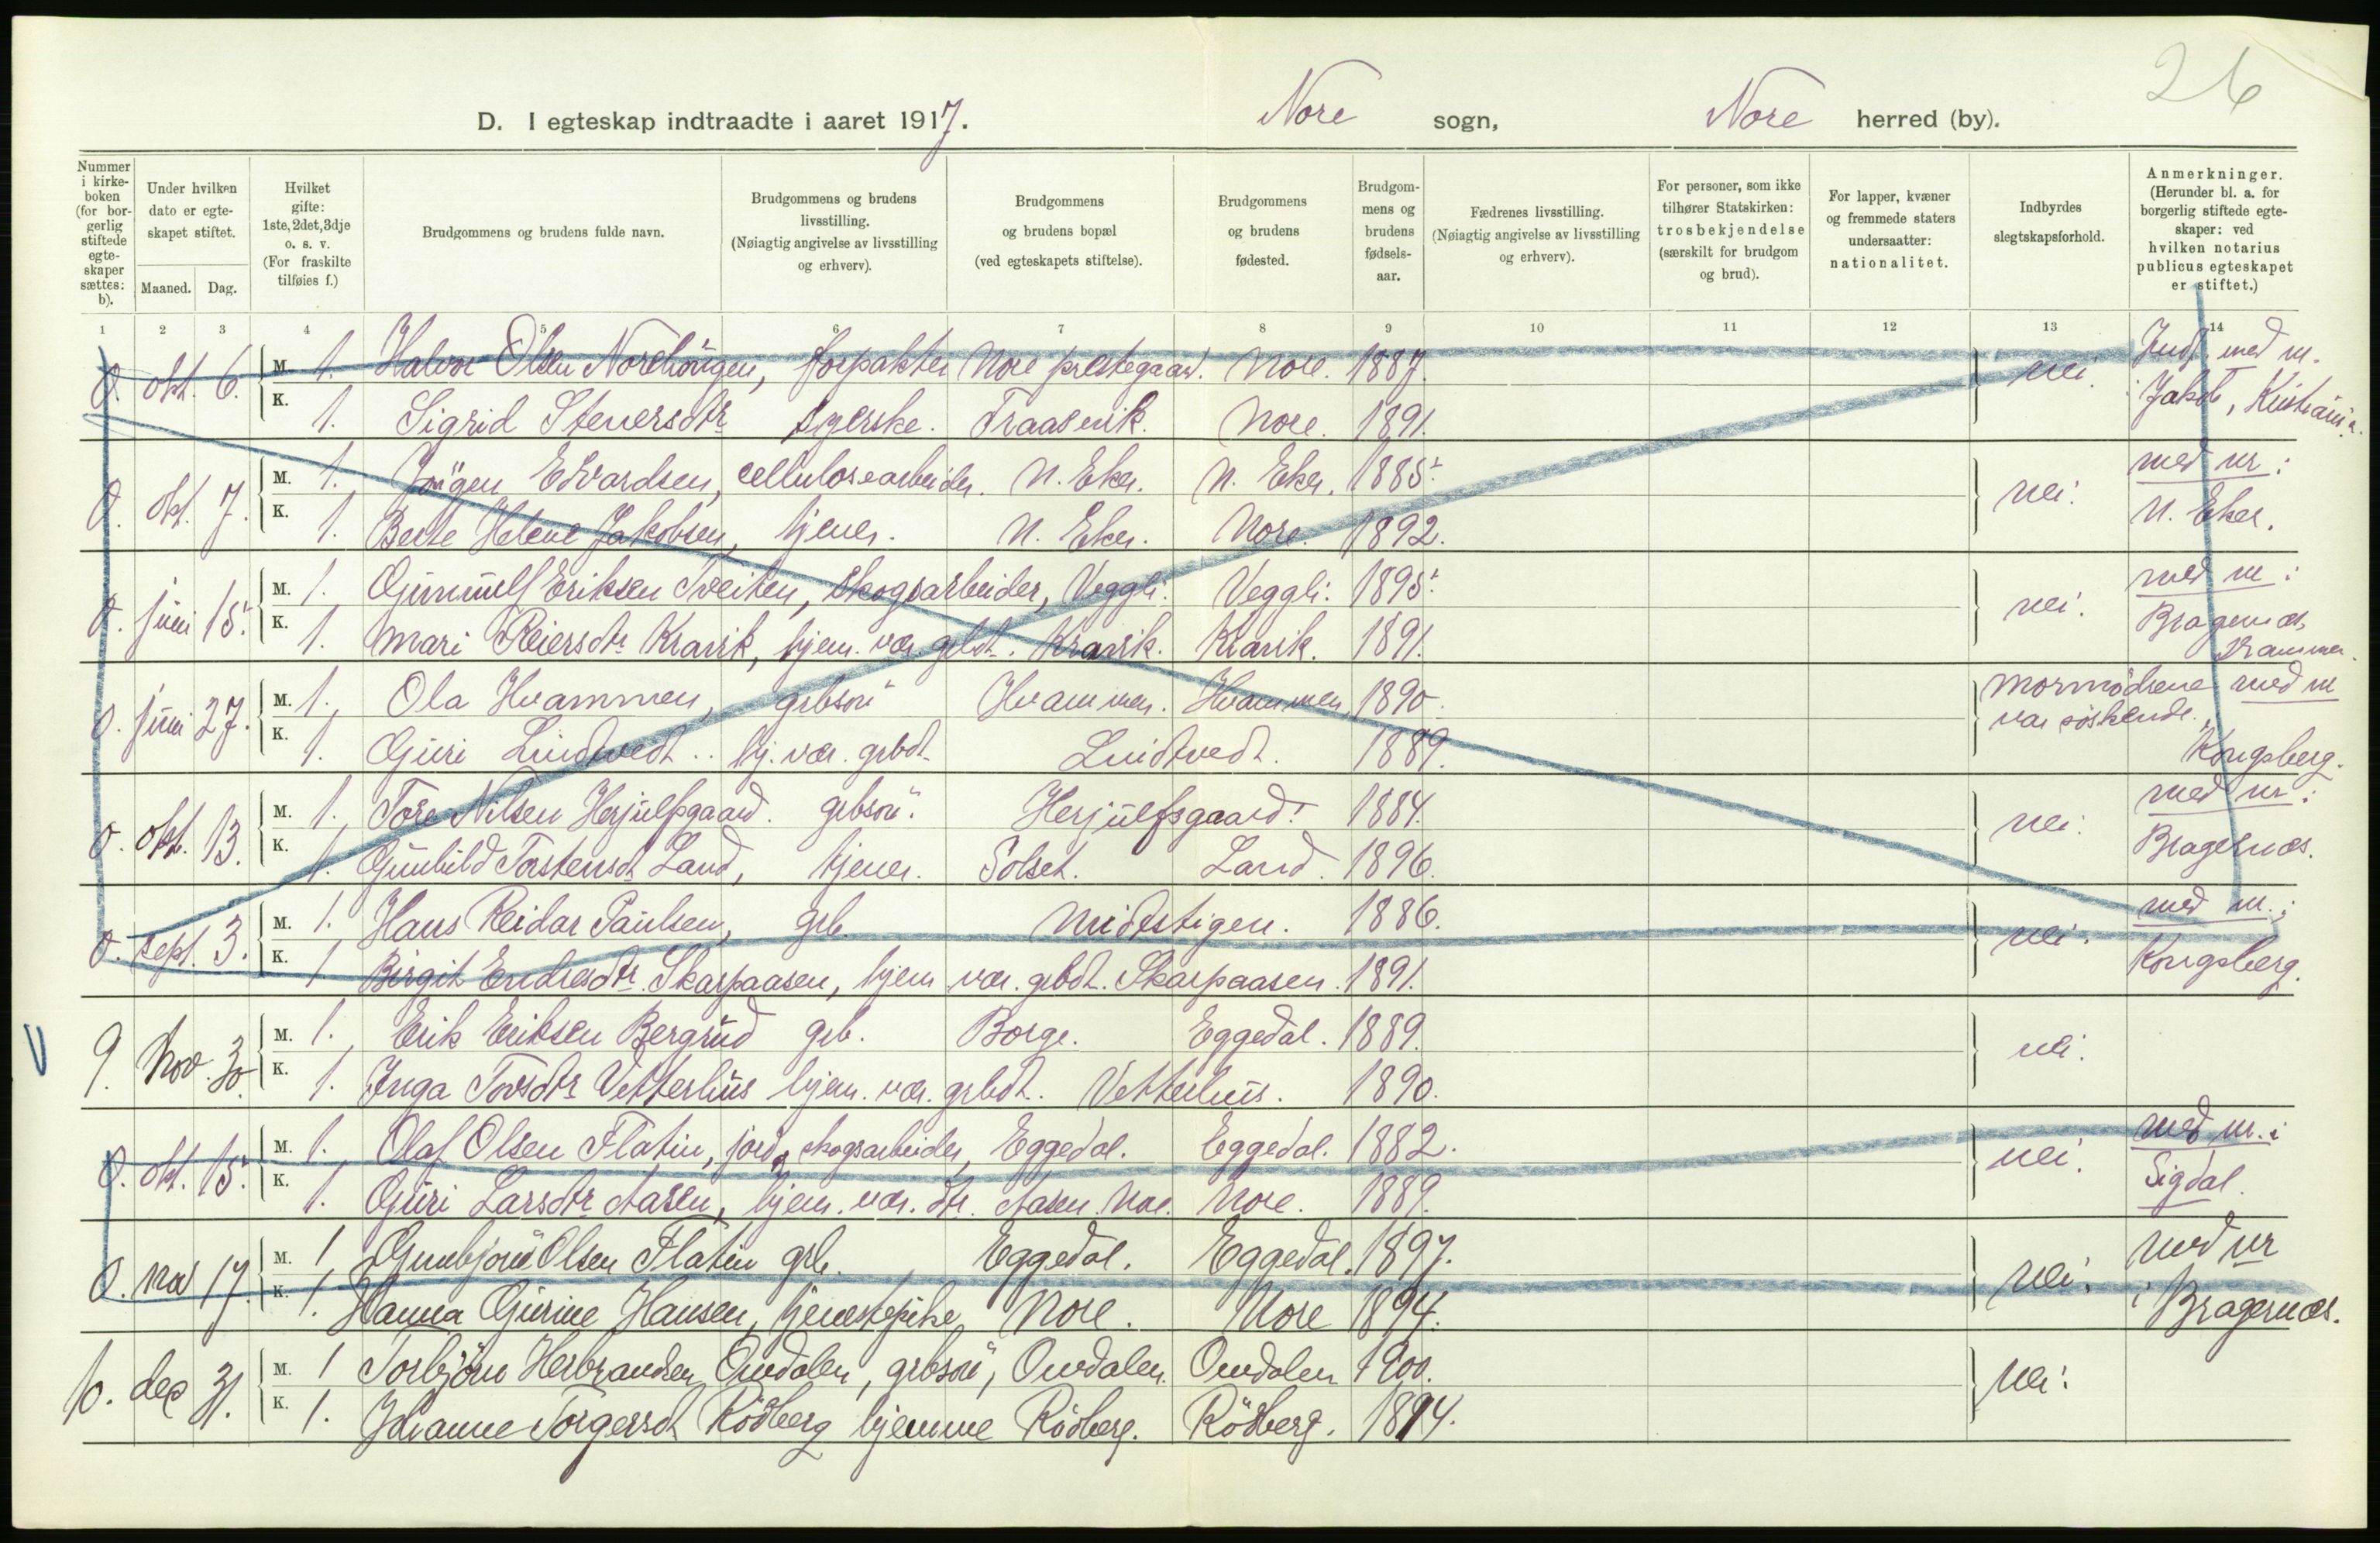 26
D. I egteskap indtraadte i aaret 1917. Nore sogn, Nore herred (by).
Nummer i kirkeboken (for borgerlig stiftede egteskaper sættes: b).
Under hvilken dato er egteskapet stiftet.
Maaned. Dag.
Hvilket gifte: 1ste, 2det, 3dje o. s. v. (For fraskilte tilføies f.)
Brudgommens og brudens fulde navn.
Brudgommens og brudens livsstilling. (Nøiagtig angivelse av livsstilling og erhverv).
Brudgommens og brudens bopæl (ved egteskapets stiftelse).
Brudgommens og brudens fødested.
Brudgommens og brudens fødselsaar.
Fædrenes livsstilling. (Nøiagtig angivelse av livsstilling og erhverv).
For personer, som ikke tilhører Statskirken: trosbekjendelse (særskilt for brudgom og brud).
For lapper, kvæner og fremmede staters undersaatter: nationalitet.
Indbyrdes slegtskapsforhold.
Anmerkninger. (Herunder bl. a. for borgerlig stiftede egteskaper: ved hvilken notarius publicus egteskapet er stiftet.)
1 2 3 4 5 6 7 8 9 10 11 12 13 14
0. okt. 6. M. 1. Halvor Olsen Norehöugen, forpakter Nore prestegaard. Nore. 1887. nei. Indf. med nr. i
K. 1. Sigrid Steversdtr syerske. Traasvik. Nore. 1891. Jakob, Kristiania.
0. okt. 7. M. 1. Jörgen Edvardsen, cellulosearbeider. N. Eker. N. Eker. 1885. nei. med nr i
K. 1. Berte Helene Jakobsen, tjener. N. Eker. Nore. 1892. N. Eker.
0. juni 15. M. 1. Gunnulf Eriksen Sveiten, skogsarbeider, Veggli. Veggli. 1895. nei. med nr i
K. 1. Mari Reiersdtr Kravik, hjem. vær. grbdt. Kravik. Kravik. 1891. Bragernæs, Drammen.
0. juni 27. M. 1. Ola Hvammen, grbsøn Hvammen. Hvammen 1890. Mormödrene med nr
K. 1. Guri Lindtvedt. hj. vær. grbdt. Lindtvedt. 1889. var söskende. i Kongsberg.
0. okt. 13. M. 1. Tore Nilsen Herjulfsgaard. grbsøn. Herjulfsgaard. 1884. nei. med nr. i
K. 1. Gunhild Torstensdt Land, tjener. Solset. Land. 1896. Bragernæs.
0. sept. 3. M. 1. Hans Reidar Paulsen, grb. Midtstigen. 1886. nei. med nr. i
K. 1. Birgit Endresdtr Skarpaasen, hjem vær. grbdt. Skarpaasen. 1891. Kongsberg.
V 9. Nov. 30. M. 1. Erik Eriksen Bergrud grb. Borge. Eggedal. 1889. nei.
K. 1. Inga Tovsdtr Vetterhus hjem. vær. grbdt. Vetterhus. 1890.
0. okt. 15. M. 1. Olaf Olsen Flatin, jord og skogsarbeider, Eggedal. Eggedal. 1882. nei. med nr. i
K. 1. Guri Larsdtr Aasen, hjem. vær. dtr. Aasen. Nore. Nore. 1889. Sigdal.
0. nov 17. M. 1 Gunbjörn Olsen Flatin grb. Eggedal. Eggedal. 1897. nei. med nr
K. 1. Hanna Gurine Hansen, tjenestepike Nore. Nore 1894. i Bragernæs.
10. des 31. M. 1 Torbjörn Herbrandsen Ouvdalen, grbsøn, Ouvdalen. Ouvdalen 1900. nei.
K. 1. Johanne Torgersdt Rödberg hjemme Rödberg. Rödberg. 1894.